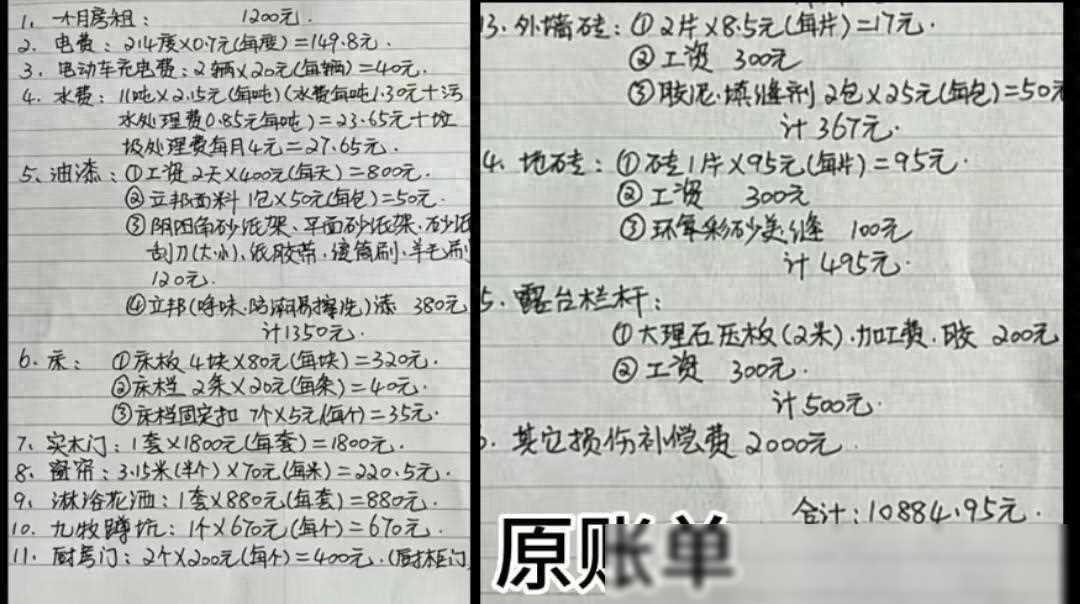 1. 一个月房租： 1200元.
2. 电费：214度×0.7元(每度)=149.8元.
3. 电动车充电费：2辆×20元(每辆)=40元.
4. 水费：11吨×2.15元(每吨)(水费每吨1.30元+污
水处理费0.85元每吨)=23.65元+垃
圾处理费每月4元=27.65元.
5、油漆：①工资 2天×400元(每天)=800元.
②立邦面料 1包×50元(每包)=50元.
③阴阳角砂纸架、平面砂纸架、砂纸
刮刀(大小)、纸胶带、滚筒刷、羊毛刷
120元.
④立邦(呼味.防潮易擦洗)漆 380元
计1350元.
6、床： ①床板 4块×80元(每块)=320元.
②床档 2条×20元(每条)=40元.
③床档固定扣 7个×5元(每个)=35元.
7、实木门：1套×1800元(每套)=1800元.
8、窗帘：3.15米(半个)×70元(每米)=220.5元.
9、淋浴花洒：1套×880元(每套)=880元.
10、九牧蹲坑：1个×670元(每个)=670元.
11、厨房门：2个×200元(每个)=400元.(厨柜门
3、外墙砖：①2片×8.5元(每片)=17元
②工资 300元
③胶泥.填缝剂 2包×25元(每包)=50元
计367元.
4、地砖：①砖1片×95元(每片)=95元.
②工资 300元
③环氧彩砂美缝 100元
计495元.
5、露台栏杆：
①大理石压板(2米).加工费.胶 200元
②工资 300元.
计500元.
其它损伤补偿费 2000元
合计：10884.95元.
原账单